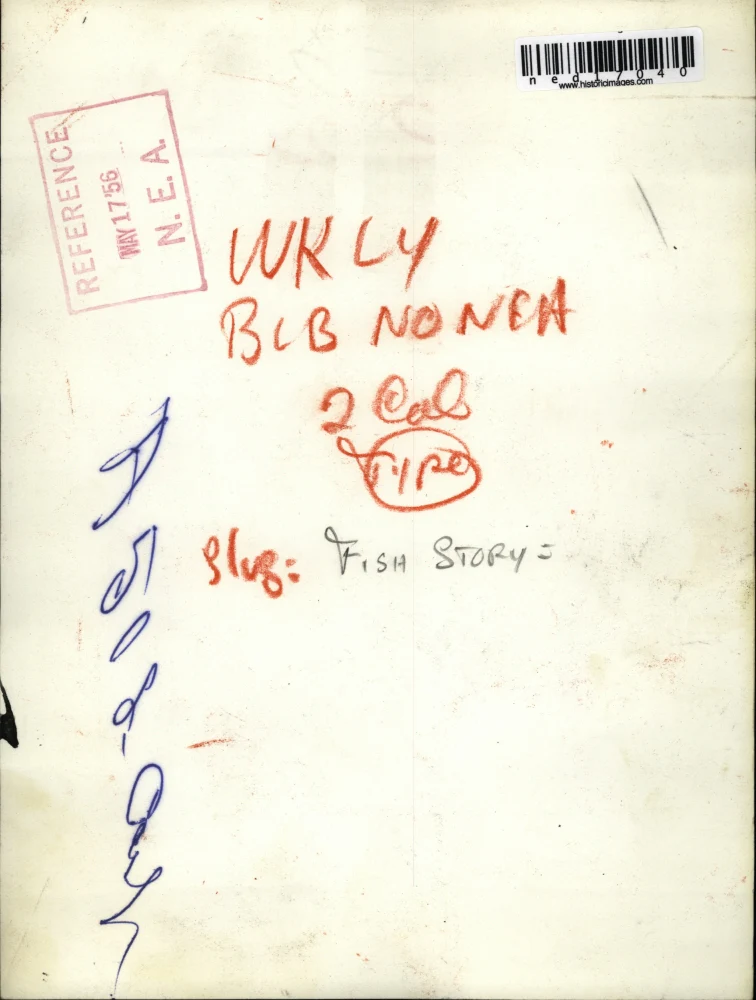 ned17040
www.historicimages.com
REFERENCE
MAY 17 '56
N. E. A.
WKLY
BCB NO NEA
2 Col
TYPO
Slug: FISH STORY =